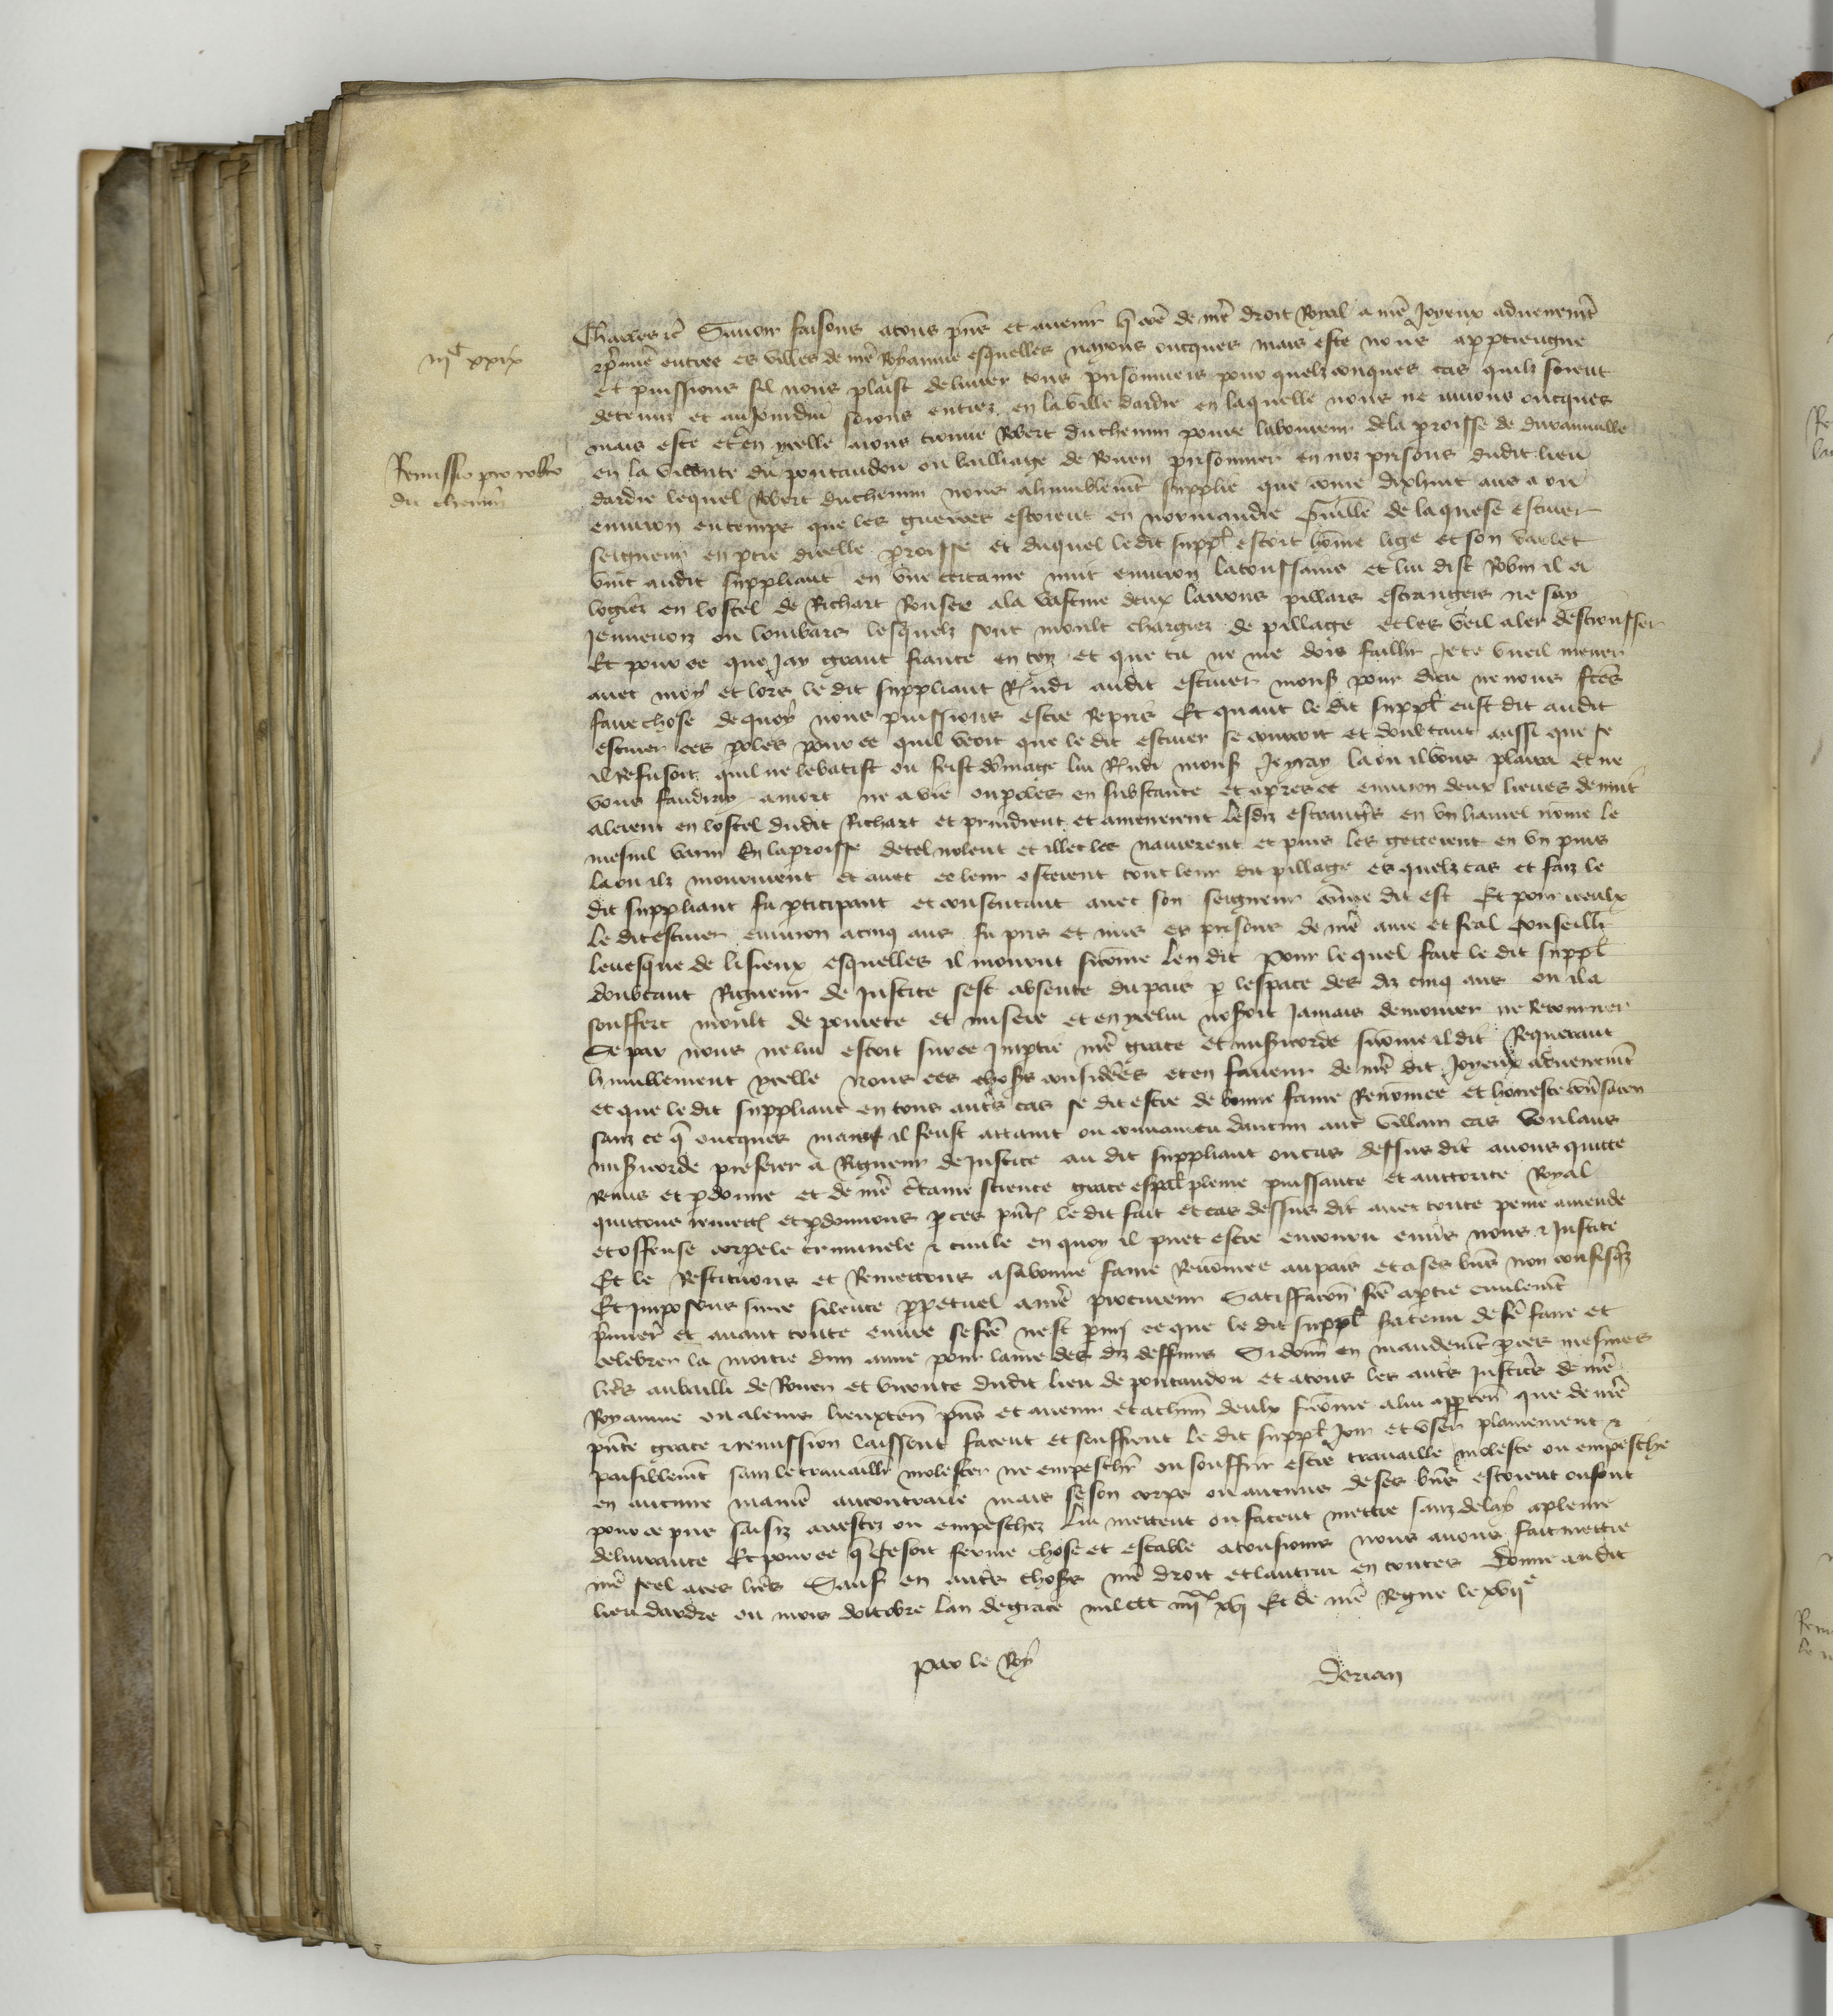 Charles etc Savoir faisons a tous pñs et avenir q̃ cõe de nr̃e droit Royal a nr̃e Joyeux advenemt̃
iijᶜ xxix
et p̃miere entree es villes de nr̃e Royaume esquelles nayons oncques mais este nous appartiengne
et puissions sil nous plaist delivrer tous prisonniers pour quelzconques cas quilz soient
detenuz et au jourduy soions entrez en la ville dardre en laquelle nous ne avions oncques
mais este et en ycelle aions trouve Robert duchemin povre laboureur de la parroisse de duranville
Remissio pro robto
du chemin
en la viconte du pontaudou ou bailliage de Rouen prisonnier en noz prisons dudit lieu
dardre lequel Robert duchemin nous a humblemt̃ supplie que come dixhuit ans a ou
environ en temps que les guerres estoient en normandie Guillẽ de la quese escuier
seigneur en ptie dicelle parroisse et duquel ledit suppl̃ estoit hõme lige et son varlet
vint audit suppliant en une certaine nuit environ la toussains et lui dist Robin il a
logiez en lostel de Richart Rousee a la Wastine deux larrons pillars estrangers ne say
Jennevoiz ou lombars lesquelz sont moult chargiez de pillage et les veil aler destrousser
Et pour ce que Jay grant fiance en toy et que tu ne me dois faillir Je te vueil mener
avec moy et lors le dit suppliant Rñdi audit escuier mons̃ pour dieu ne nous ftẽs
faire chose de quoy nous puissions estre repris Et quant le dit suppl̃ eust dit audit
escuier ces poles pour ce quil veoit que le dit escuier se courcoit et doubtant aussi que se
il refusoit quil ne le batist ou feist dõmage lui Rñdi mons̃ Je yray la ou il vous plaira et ne
vous faudray a mort ne a vie ou poles en substance et apres ce environ deux heures de nuit
alerent en lostel dudit Richart et prindrent et amenerent lesdiz estrangiers en un hamel nõme le
mesnil varin en la parroisse de tel nolent et illec les navrerent et puis les getterent en un puis
la ou ilz moururent et avec ce leur osterent tout leur dit pillage es quelz cas et faiz le
dit suppliant fu pticipant et consentant avec son seigneur cõme dit est Et pour iceulx
le dit escuier environ a cinq ans fu pris et mis es prisons de nr̃e ame et feal Conseillr̃
levesque de lisieux esquelles il mourut sicõme len dit pour le quel fait le dit suppl̃
doubtant Rigueur de Justice sest absente du pais p lespace des diz cinq ans ou il a
souffert moult de povrete et misere et en ycelui noseroit Jamais demourer ne retourner
Se par nous ne lui estoit sur ce Impartie nr̃e grace et miscõrde sicõme il dit Requerant
humblement ycelle nous ces choses considerees et en faveur de nr̃e dit Joyeux advenemt̃
et que le dit suppliant en tous autr̃s cas se dit estre de bonne fame Renõmee et honeste cõvsacion
sanz ce q̃ oncques mais il feust attaint ou convaincu daucun autr̃ villain cas Voulans
misericorde preferer a Rigueur de Justice au dit suppliant ou cas dessus dit avons quitte
remis et pdonne et de nr̃e c̃taine science grace espal̃ pleine puissance et auctorite Royal
quittons remettõs et pdonnons p ces pñtes le dit fait et cas dessus dit avec toute peine amende
et offense corpele criminele & civile en quoy il puet estre encouru envers nous & Justice
Et le Restituons et Remettons a sa bonne fame Renõmee au pais et a ses biẽs non confisq̃z
Et Imposons sur ce silence ppetuel a nr̃e procureur Satisfaccõn fcẽ a ptie civilemt̃
p̃mier et avant toute euvre se fcẽ nest parmi ce que le dit suppl̃ sera tenu de fẽ faire et
celebrer la moitie dun anne pour lame des diz deffuns Si donñ en mandemt̃ p ces mesmes
lr̃es au bailli de Rouen et viconte dudit lieu de pontaudou et a tous les autr̃s Justicrs de nr̃e
Royaume ou a leurs lieuxteñ pñs et avenir et a chũn deulx sicõme a lui apparteñ que de nr̃e
pñte grace & remission laissent facent et seuffrent le dit suppl̃ Joir et user plainement &
paisiblemt̃ sanz le travaillr̃ molester ne empeschr̃ ou souffrir estre travaille moleste ou empesche
en aucune manr̃e au contraire mais se son corps ou aucuns de ses biẽs estoient ou sont
pour ce pris saisiz arrestez ou empeschez lui mettent ou facent mettre sanz delay a pleine
delivrance Et pour ce q̃ ce soit ferme chose et estable a tousiours nous avons fait mettre
nr̃e seel a ces lr̃es Sauf en autr̃s choses nr̃e droit et lautrui en toutes Donne audit
lieu dardre ou mois doctobre lan de grace mil ccc iiijxx xvj Et de nr̃e Regne le xviie
Par le Roy
Derian